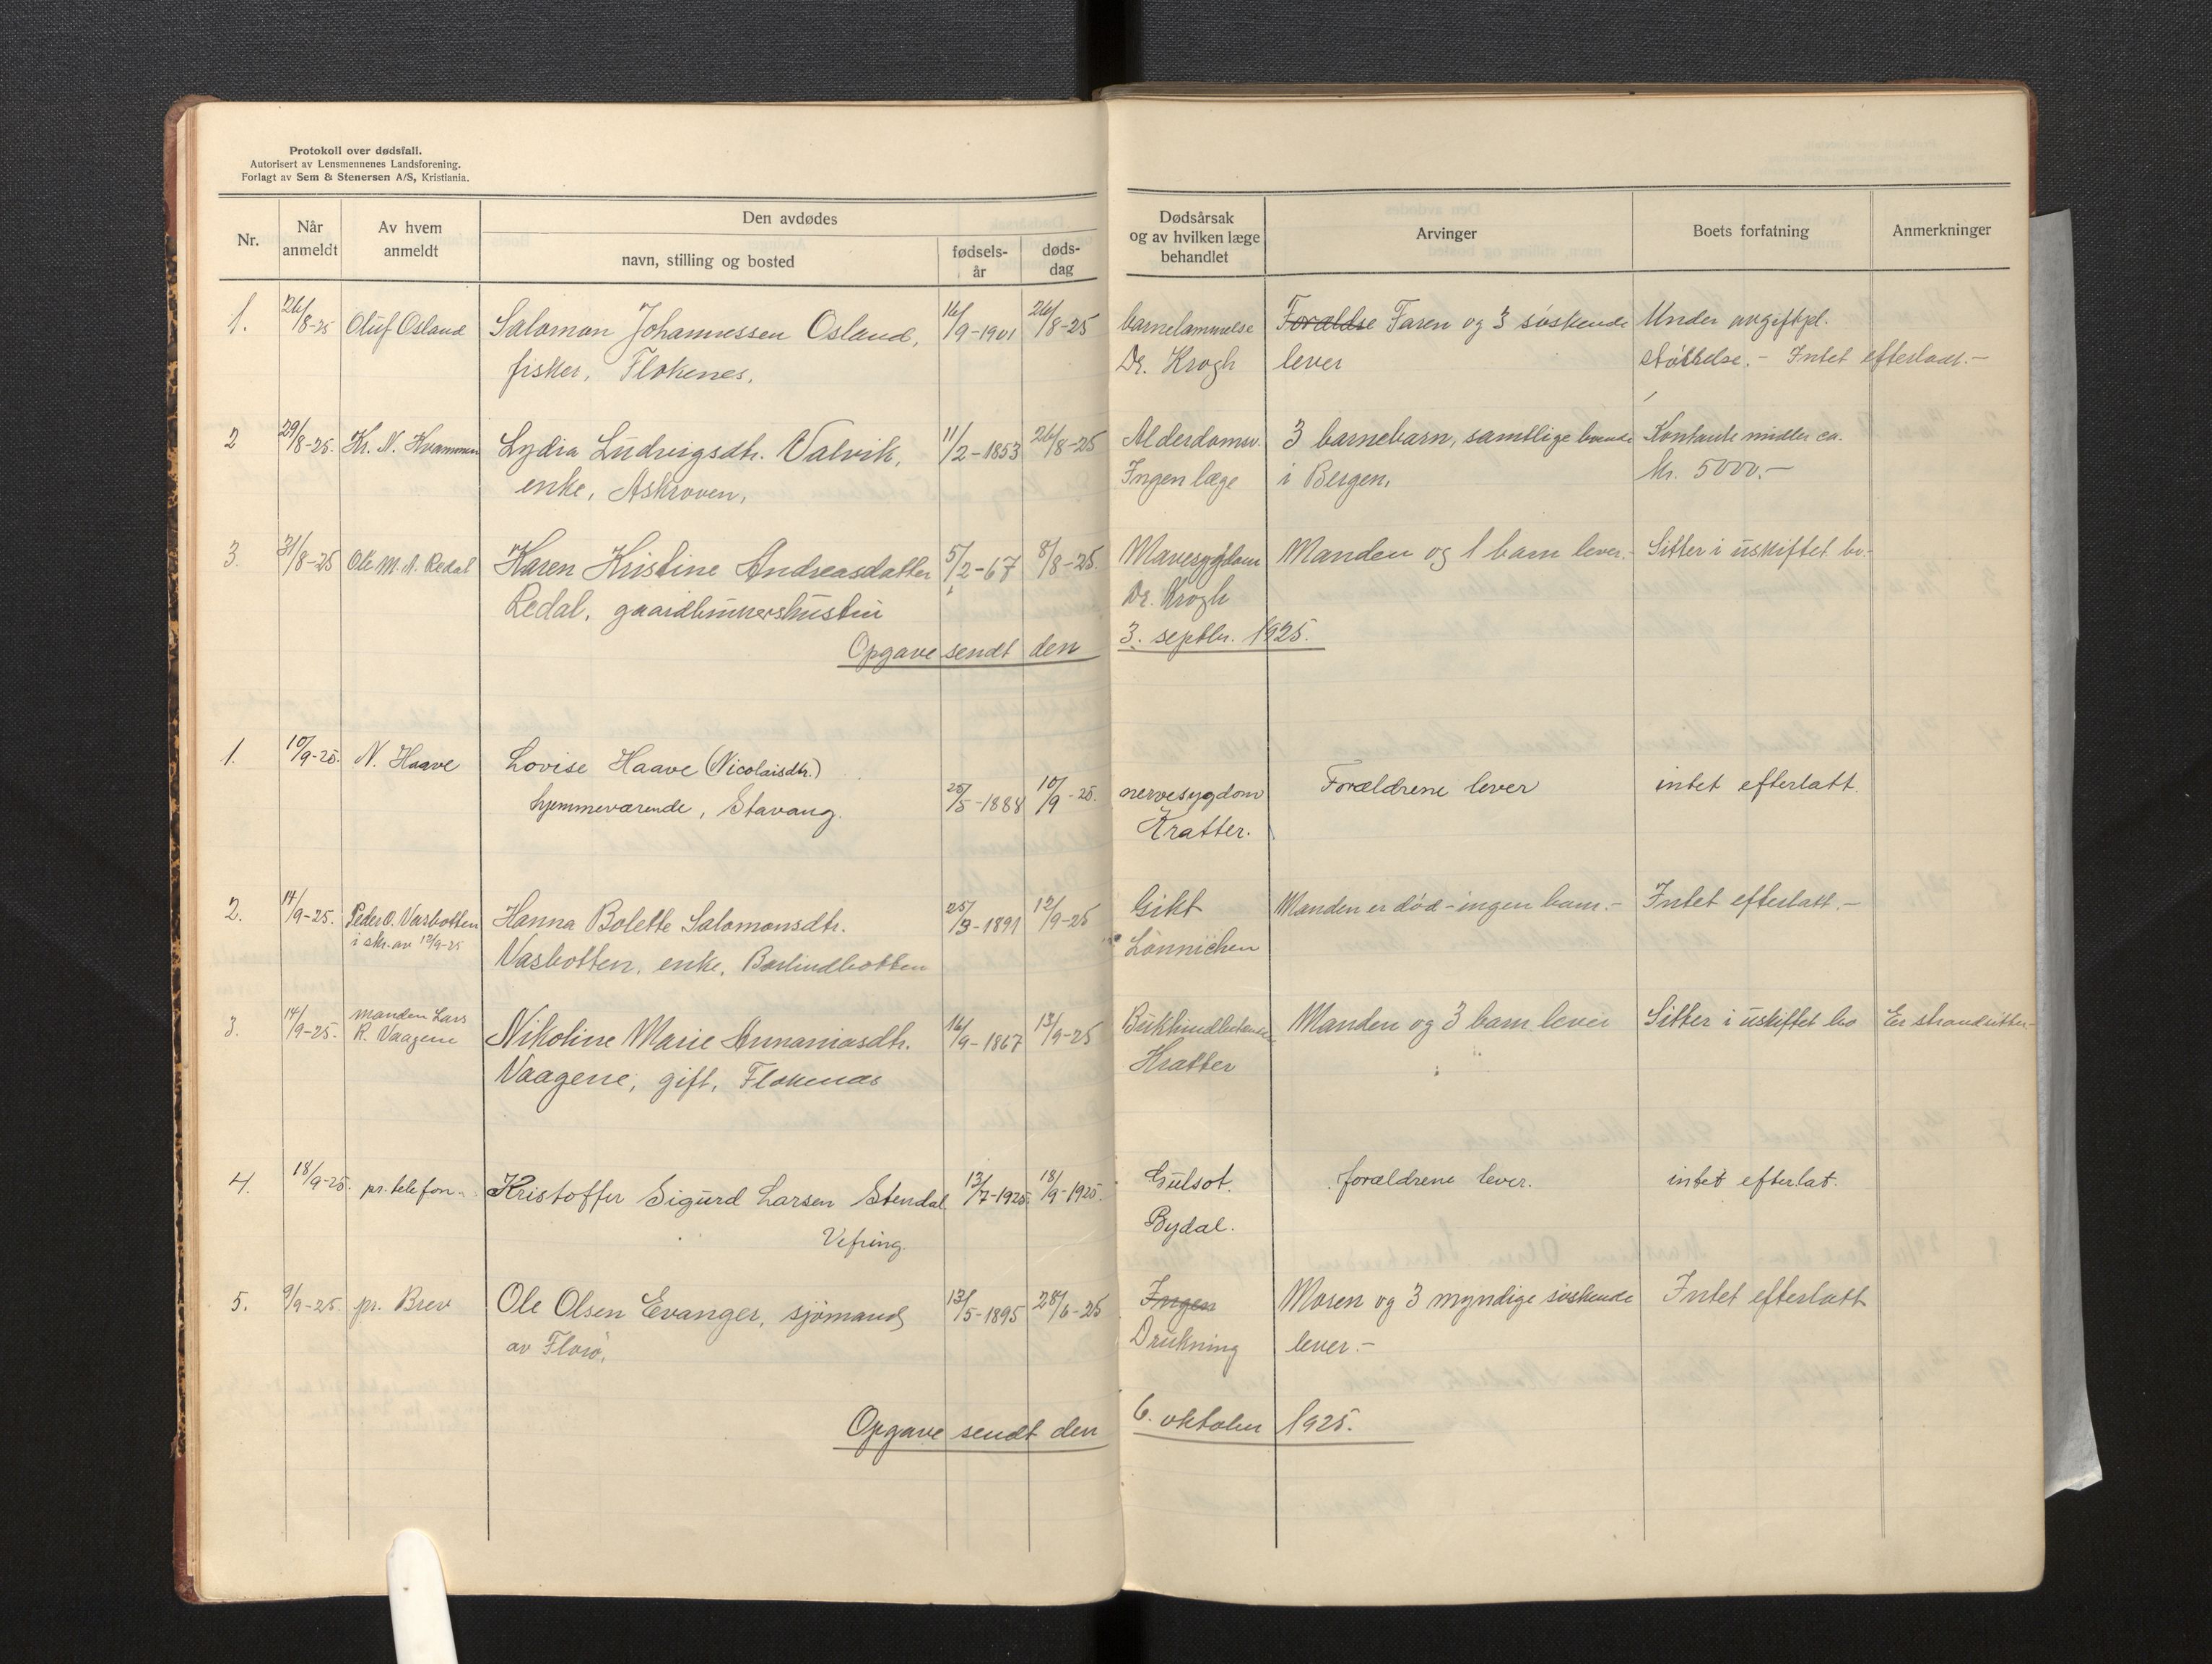 Protokoll over dødsfall.
Autorisert av Lensmennenes Landsforening.
Forlagt av Sem & Stenersen A/S, Kristiania.
Nr.
Når anmeldt
Av hvem anmeldt
Den avdødes
navn, stilling og bosted
fødsels-år
døds-dag
Dødsårsak og av hvilken læge behandlet
Arvinger
Boets forfatning
Anmerkninger
1. 26/8-25 Oluf Osland Salomon Johannessen Osland, 16/9-1901 26/8-25 barnelammelse Forældre Faren og 3 søskende Under
fisker, Flokenes. Dr. Krogh lever støttelse. - Intet efterladt. -
2 29/8-25. Kr. N. Kvammen Lydia Ludvigsdtr. Valvik, 11/2-1853 26/8-25 Alderdomsv. 3 barnebarn, samtlige boende Kontante midler ca.
enke, Askroven, Ingen læge i Bergen. kr. 5000.-
3. 31/8-25 Ole M. A. Redal Karen Kristine Andreasdatter 5/2-67 8/8-25. Mavesygdom Manden og 1 barn lever.- Sitter i uskiftet bo-
Redal, gaardbrukerhustru Dr. Krogh
Opgave sendt den 3. septbr. 1925.
1. 10/9-25. N. Haave Lovise Haave (Nicolaisdtr.)
hjemmeværende, Stavang. 25/5-1888 10/9-25. nervesygdom Forældrene lever intet efterlatt.
Kratter.
2. 14/9-25. Peder O. Vasbotten Hanna Bolette Salomonsdtr. 25/3-1891 12/9-25 Gikt Manden er død - ingen barn.- Intet efterlatt.-
i skr. av 12/9-25 Vasbotten, enke, Barlindbotten Lönnichen
3. 14/9-25. manden Lars R. Vaagene Nikoline Marie Annaniasdtr. 16/9-1867 13/9-25 Manden og 3 barn lever Sitter i uskiftet bo Er strandsitter-
Vaagene, gift, Flokenes Kratter
4. 18/9-25. pr. telefon.- Kristoffer Sigurd Larsen Stendal 13/7-1925. 18/9-1925. Gulsot. forældrene lever. intet efterlat.
Vefring. Bydal.
5. 9/9-25 pr. Brev Ole Olsen Evanger, sjømand 13/5-1895 28/6-25 Ingen Moren og 3 myndige søskende Intet efterlatt
av Florø. Drukning lever.-
Opgave sendt den 6. oktober 1925.